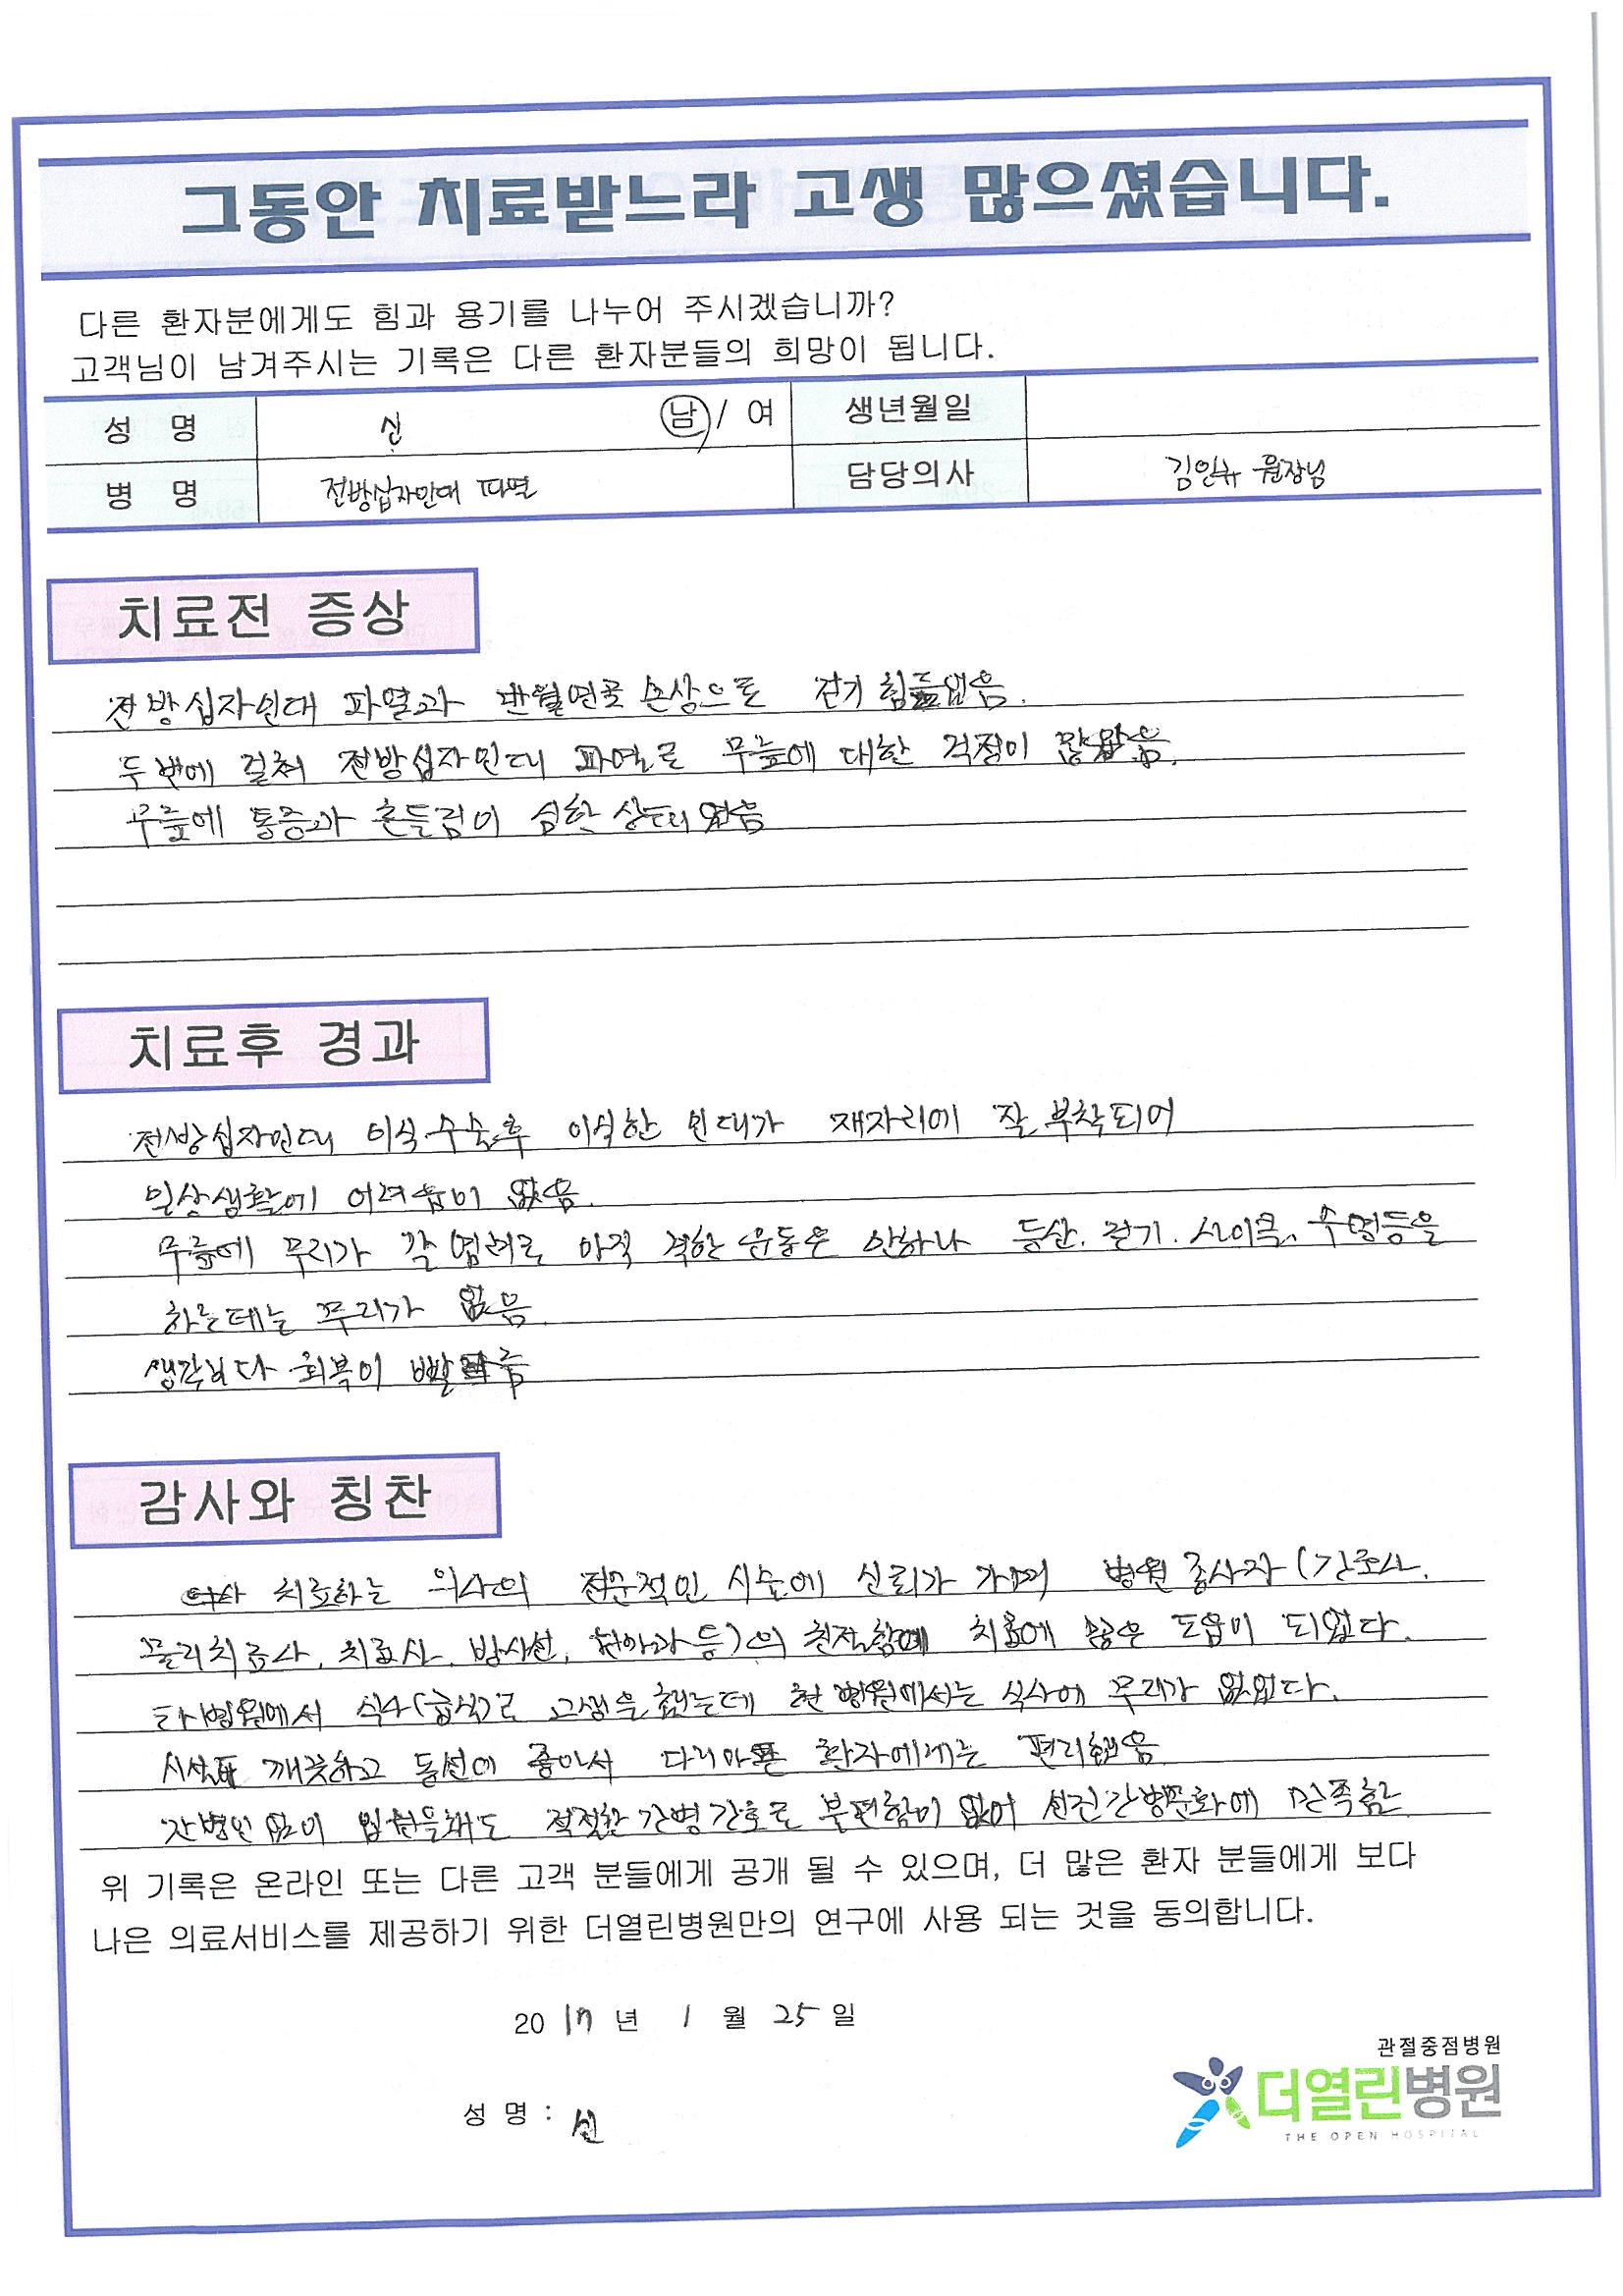 그동안 치료받느라 고생 많으셨습니다.
다른 환자분에게도 힘과 용기를 나누어 주시겠습니까?
고객님이 남겨주시는 기록은 다른 환자분들의 희망이 됩니다.
성 명 신 남 / 여 생년월일
병 명 전방십자인대 파열 담당의사 김인규 원장님
치료전 증상
전방십자인대 파열과 반월연골 손상으로 걷기 힘들었음.
두번에 걸쳐 전방십자인대 파열로 무릎에 대한 걱정이 많았음.
무릎에 통증과 흔들림이 심한 상태였음
치료후 경과
전방십자인대 이식 수술후 이식한 인대가 재자리에 잘 부착되어
일상생활에 어려움이 없음.
무릎에 무리가 갈 염려로 아직 격한 운동은 안하나 등산. 걷기. 사이클. 수영등을
하는데는 무리가 없음.
생각보다 회복이 빠름
감사와 칭찬
치료하는 의사의 전문적인 시술에 신뢰가 가며 병원 종사자 (간호사,
물리치료사, 치료사, 방사선, 등)의 친절함에 치료에 많은 도움이 되었다.
타병원에서 식사(급식)로 고생을 했는데 현 병원에서는 식사에 무리가 없었다.
시설도 깨끗하고 동선이 좋아서 다리아픈 환자에게는 편리했음
간병인 없이 입원을해도 적절한 간병간호로 불편함이 없어 선진간병문화에 만족함
위 기록은 온라인 또는 다른 고객 분들에게 공개 될 수 있으며, 더 많은 환자 분들에게 보다
나은 의료서비스를 제공하기 위한 더열린병원만의 연구에 사용 되는 것을 동의합니다.
2017 년 1 월 25 일
성 명 : 신
관절중점병원
더열린병원
THE OPEN HOSPITAL